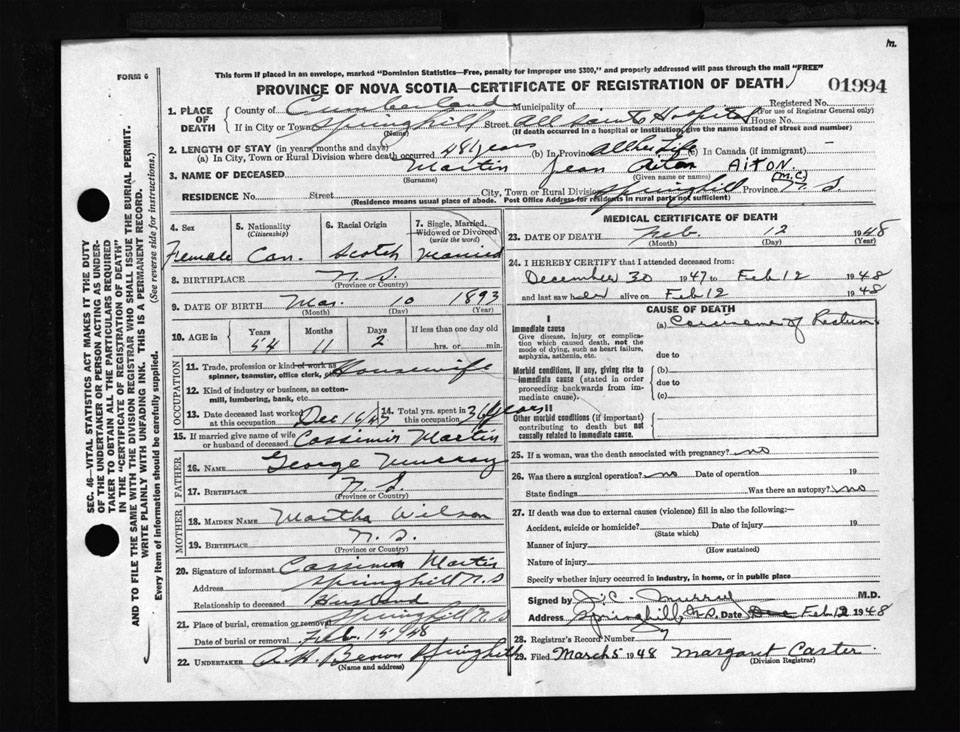 m.
FORM 6
This form if placed in an envelope, marked "Dominion Statistics—Free, penalty for improper use $300," and properly addressed will pass through the mail "FREE"
PROVINCE OF NOVA SCOTIA—CERTIFICATE OF REGISTRATION OF DEATH 01994
1. PLACE OF DEATH
County of Cumberland Municipality of Registered No.
(For use of Registrar General only)
If in City or Town Springhill Street All Saints Hospital House No.
(Name) (If death occurred in a hospital or institution, give the name instead of street and number)
2. LENGTH OF STAY (in years, months and days)
(a) In City, Town or Rural Division where death occurred 48 years (b) In Province All her Life (c) In Canada (if immigrant) —
3. NAME OF DECEASED Martin Jean Aiton AITON
(Surname) (Given name or names) (M.C)
RESIDENCE No. Street City, Town or Rural Division Springhill Province N.S
(Residence means usual place of abode. Post Office Address for residents in rural parts not sufficient)
4. Sex Female
5. Nationality (Citizenship) Can.
6. Racial Origin Scotch
7. Single, Married, Widowed or Divorced (write the word) Married
8. BIRTHPLACE N.S.
(Province or Country)
9. DATE OF BIRTH Mar. 10 1893
(Month) (Day) (Year)
10. AGE in Years Months Days If less than one day old
54 11 2 hrs. or min.
OCCUPATION
11. Trade, profession or kind of work as spinner, teamster, office clerk, Housewife
12. Kind of industry or business, as cotton-mill, lumbering, bank, etc.
13. Date deceased last worked at this occupation Dec 16/47 14. Total yrs. spent in this occupation 36 years
15. If married give name of wife or husband of deceased Cassimir Martin
FATHER
16. NAME George Murray
17. BIRTHPLACE N.S.
(Province or Country)
MOTHER
18. MAIDEN NAME Martha Wilson
19. BIRTHPLACE N.S.
(Province or Country)
20. Signature of informant Cassimir Martin
Address Springhill N.S
Relationship to deceased Husband
21. Place of burial, cremation or removal Springhill N.S
Date of burial or removal Feb. 15 1948
22. UNDERTAKER A.H. Brown Springhill
(Name and address)
MEDICAL CERTIFICATE OF DEATH
23. DATE OF DEATH Feb. 12 1948
(Month) (Day) (Year)
24. I HEREBY CERTIFY that I attended deceased from:
December 30 1947 to Feb 12 1948
and last saw her alive on Feb 12 1948
CAUSE OF DEATH
I
Immediate cause (a) Carcinoma of Rectum
Give disease, injury or complication which caused death, not the mode of dying, such as heart failure, asphyxia, asthenia, etc.
due to
Morbid conditions, if any, giving rise to immediate cause (stated in order proceeding backwards from immediate cause). (b)
due to
(c)
II
Other morbid conditions (if important) contributing to death but not causally related to immediate cause.
25. If a woman, was the death associated with pregnancy? no
26. Was there a surgical operation? no Date of operation 19
State findings Was there an autopsy? no
27. If death was due to external causes (violence) fill in also the following:—
Accident, suicide or homicide? Date of injury 19
(State which)
Manner of injury
(How sustained)
Nature of injury
Specify whether injury occurred in industry, in home, or in public place
Signed by J.C. Murray M.D.
Address Springhill, N.S. Date Feb 12 1948
28. Registrar's Record Number 7
29. Filed March 5 1948 Margaret Carter
(Division Registrar)
SEC. 46—VITAL STATISTICS ACT MAKES IT THE DUTY
OF THE UNDERTAKER OR PERSON ACTING AS UNDER-
TAKER TO OBTAIN ALL THE PARTICULARS REQUIRED
IN THE "CERTIFICATE OF REGISTRATION OF DEATH"
AND TO FILE THE SAME WITH THE DIVISION REGISTRAR WHO SHALL ISSUE THE BURIAL PERMIT.
WRITE PLAINLY WITH UNFADING INK. THIS IS A PERMANENT RECORD.
Every item of information should be carefully supplied. (See reverse side for instructions.)